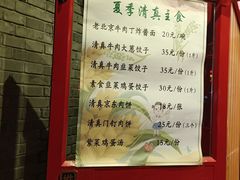 夏季清真主食
老北京牛肉丁炸酱面 20元/碗
清真牛肉大葱饺子 35元/份(1斤)
清真牛肉韭菜饺子 35元/份(1斤)
素食韭菜鸡蛋饺子 30元/份(1斤)
清真京东肉饼 18元/张
清真门钉肉饼 25元/份(三个)
紫菜鸡蛋汤 15元/份